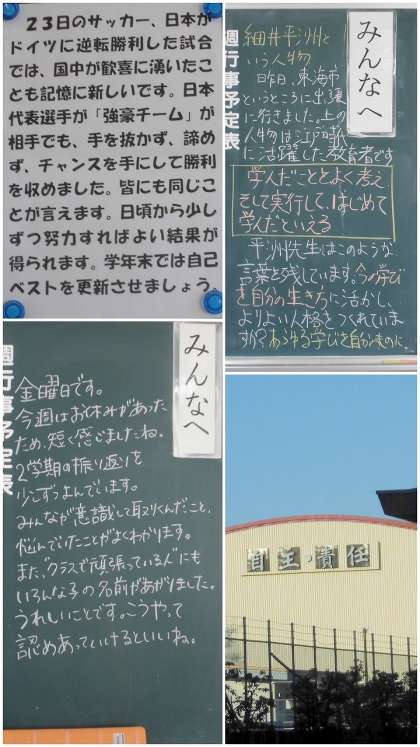 ２３日のサッカー、日本が
ドイツに逆転勝利した試合
では、国中が歓喜に湧いたこ
とも記憶に新しいです。日本
代表選手が「強豪チーム」が
相手でも、手を抜かず、諦め
ず、チャンスを手にして勝利
を収めました。皆にも同じこ
とが言えます。日頃から少し
ずつ努力すればよい結果が
得られます。学年末では自己
ベストを更新させましょう。
みんなへ
週行事予定表
細井平洲と
いう人物
昨日、東海市
というところに出張
に行きました。上の
人物は江戸時代
に活躍した教育者です
学んだことをよく考え
そして実行して、はじめて
学んだといえる
平洲先生はこのような
言葉を残しています。今の学び
を自分の生き方に活かし、
よりよい人格をつくれていま
すか?あらゆる学びを自分のものに。
みんなへ
週行事予定表
金曜日です。
今週はお休みがあった
ため、短く感じましたね。
2学期の振り返りを
少しずつよんでいます。
みんなが意識して取りくんだこと、
悩んでいたことがよくわかります。
また、"クラスで頑張っている人"にも
いろんな子の名前があがりました。
うれしいことです。こうやって
認めあっていけるといいね。
自主・責任